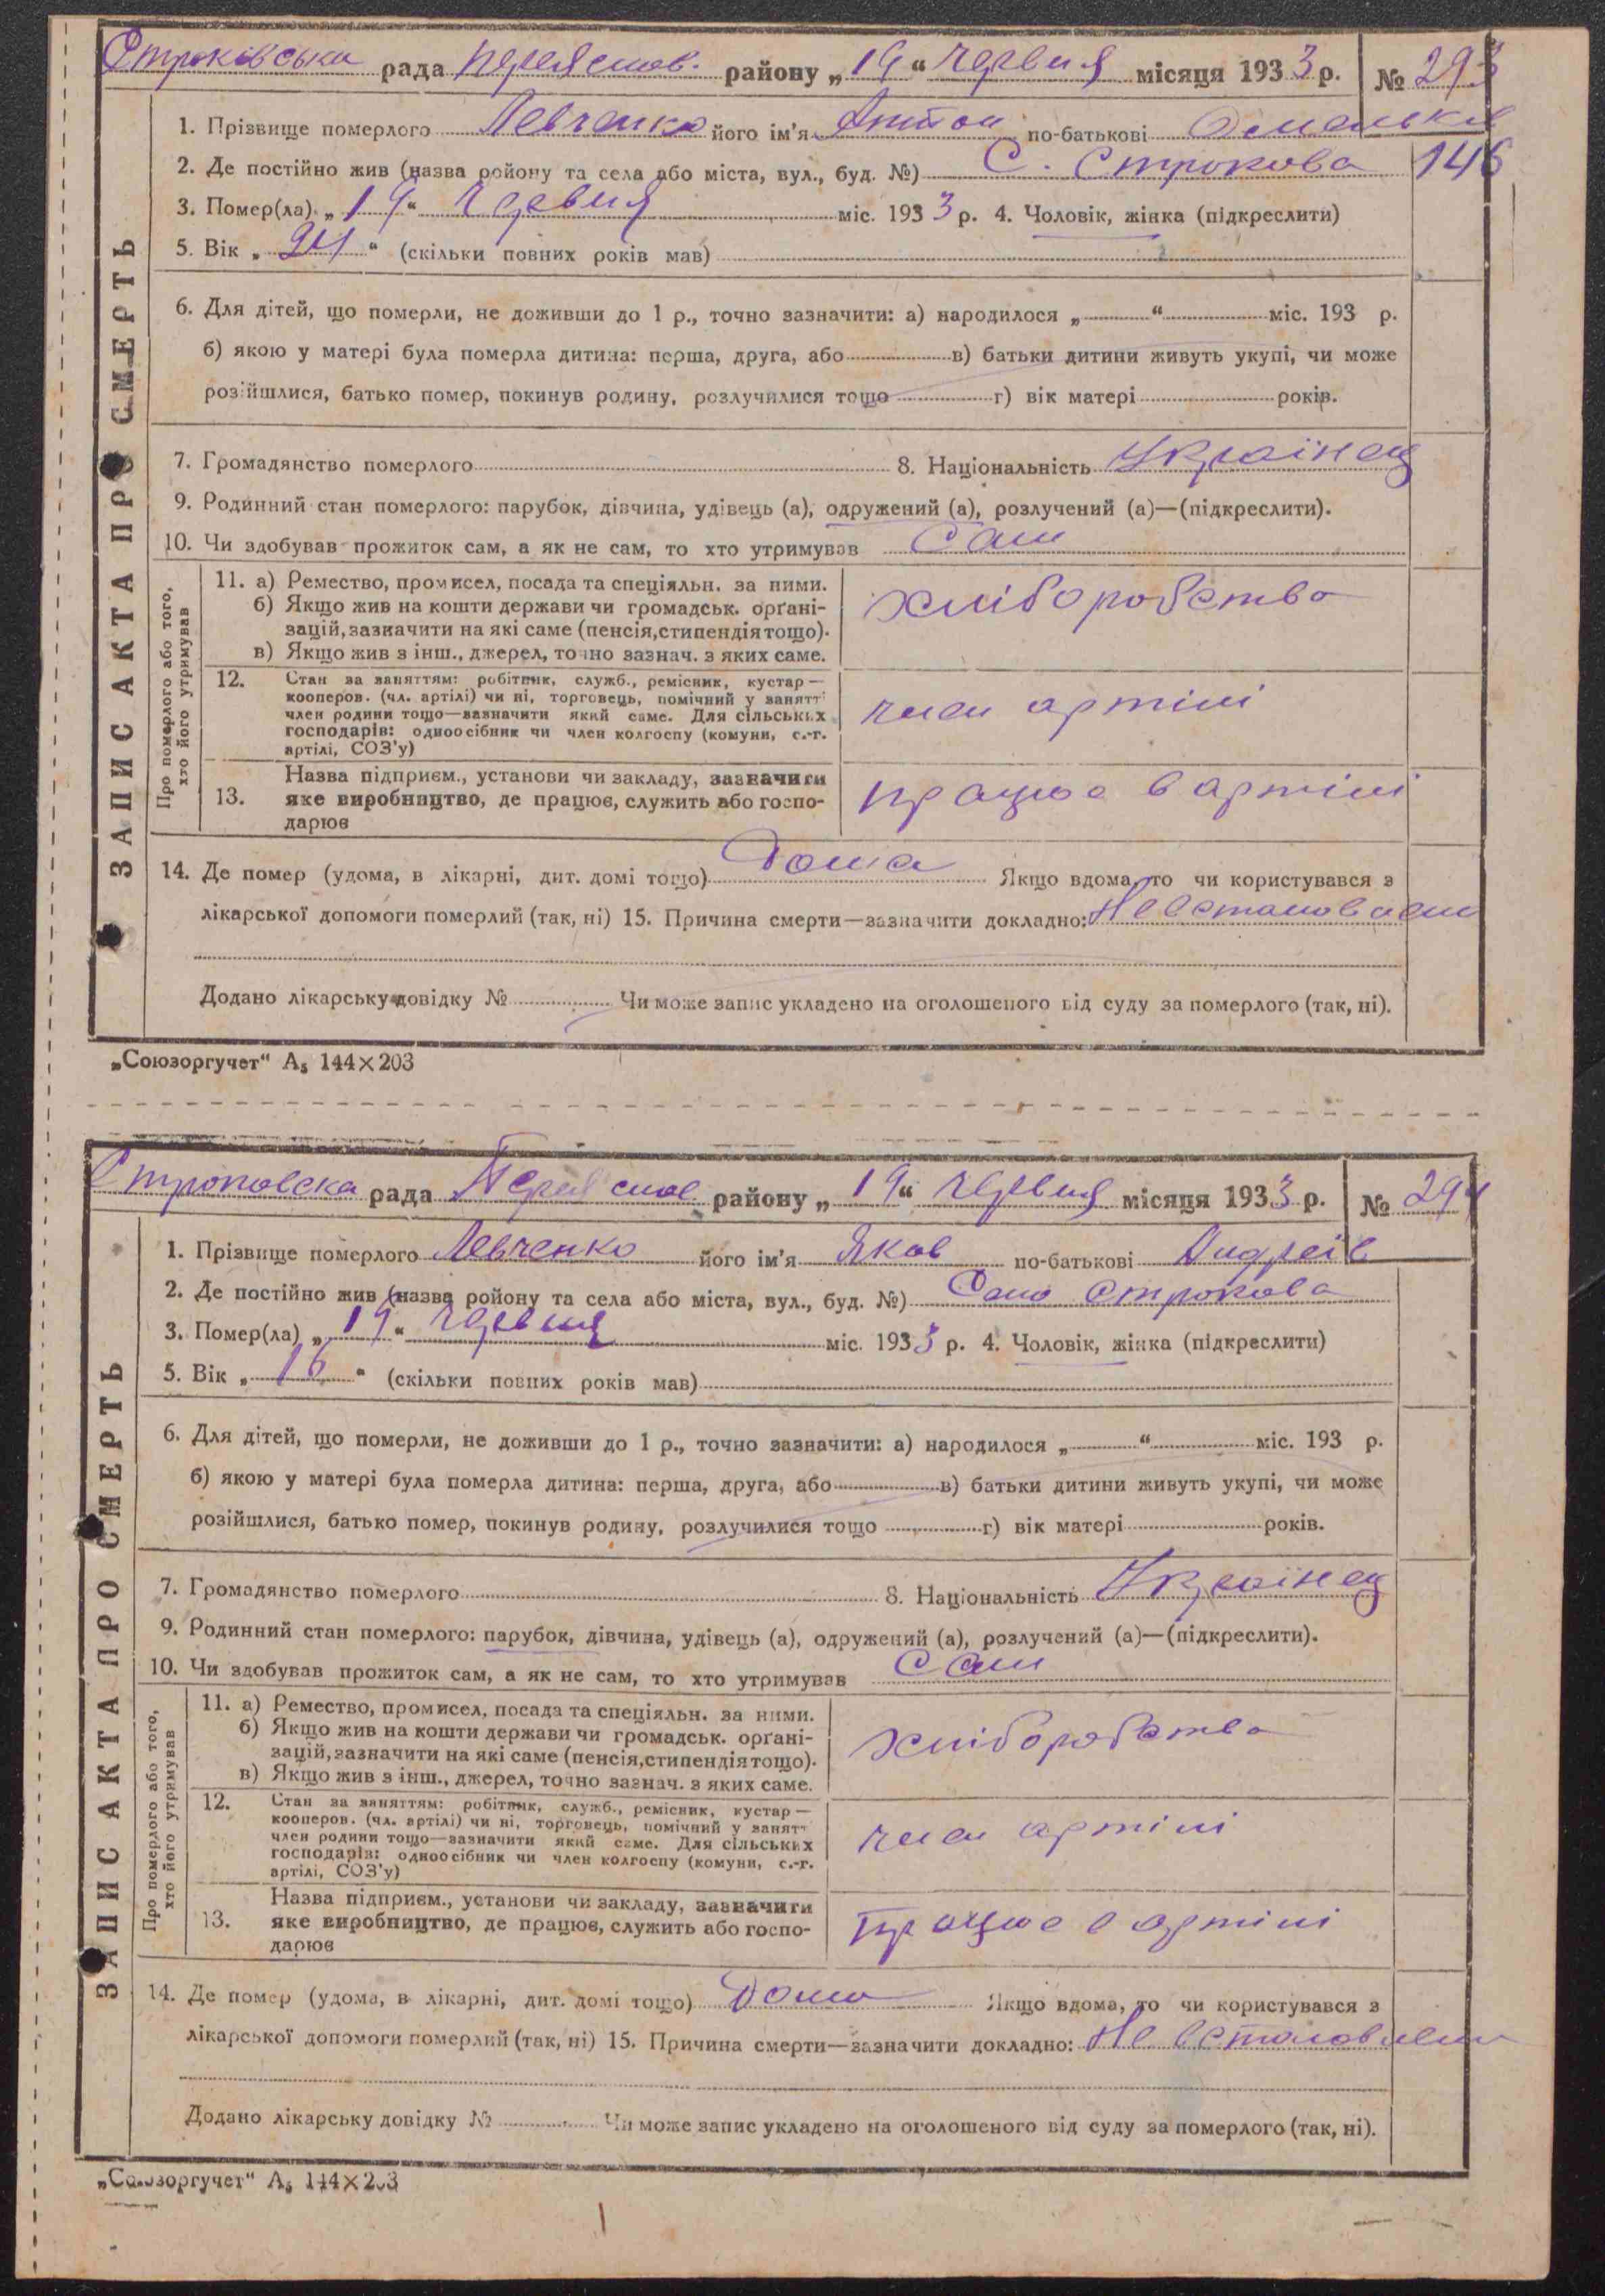 Строківська рада Переяслов. району „19“ червня місяця 1933 р. № 293
1. Прізвище померлого Левченко його ім'я Антон по-батькові
2. Де постійно жив (назва ройону та села або міста, вул., буд. №) С. Строкова 146
3. Помер(ла) „19“ червня міс. 1933 р. 4. Чоловік, жінка (підкреслити)
5. Вік „24“ (скільки повних років мав)
6. Для дітей, що померли, не доживши до 1 р., точно зазначити: а) народилося „ “ міс. 193 р.
б) якою у матері була померла дитина: перша, друга, або в) батьки дитини живуть укупі, чи може
розійшлися, батько помер, покинув родину, розлучилися тощо г) вік матері років.
7. Громадянство померлого 8. Національність Українец
9. Родинний стан померлого: парубок, дівчина, удівець (а), одружений (а), розлучений (а)—(підкреслити).
10. Чи здобував прожиток сам, а як не сам, то хто утримував Сам
ЗАПИС АКТА ПРО СМЕРТЬ
Про померлого або того, хто його утримував
11. а) Ремество, промисел, посада та спеціяльн. за ними.
б) Якщо жив на кошти держави чи громадськ. орґані-
зацій, зазначити на які саме (пенсія, стипендія тощо).
в) Якщо жив з інш., джерел, точно зазнач. з яких саме.
хліборобство
12. Стан за заняттям: робітник, служб., ремісник, кустар—
кооперов. (чл. артілі) чи ні, торговець, помічний у занятт
член родини тощо—зазначити який саме. Для сільських
господарів: одноосібник чи член колгоспу (комуни, с.-г.
артілі, СОЗ'у)
член артілі
13. Назва підприєм., установи чи закладу, зазначити
яке виробництво, де працює, служить або госпо-
дарює
працює в артілі
14. Де помер (удома, в лікарні, дит. домі тощо) Дома Якщо вдома, то чи користувався з
лікарської допомоги померлий (так, ні) 15. Причина смерти—зазначити докладно: Не встановлени
Додано лікарську довідку № Чи може запис укладено на оголошеного від суду за померлого (так, ні).
„Союзоргучет“ А₅ 144×203
Строковска рада Переяслов району „19“ червня місяця 1933 р. № 294
1. Прізвище померлого Левченко його ім'я Яков по-батькові Андреів
2. Де постійно жив (назва ройону та села або міста, вул., буд. №) Село Строкова
3. Помер(ла) „19“ червня міс. 1933 р. 4. Чоловік, жінка (підкреслити)
5. Вік „16“ (скільки повних років мав)
6. Для дітей, що померли, не доживши до 1 р., точно зазначити: а) народилося „ “ міс. 193 р.
б) якою у матері була померла дитина: перша, друга, або в) батьки дитини живуть укупі, чи може
розійшлися, батько помер, покинув родину, розлучилися тощо г) вік матері років.
7. Громадянство померлого 8. Національність Українец
9. Родинний стан померлого: парубок, дівчина, удівець (а), одружений (а), розлучений (а)—(підкреслити).
10. Чи здобував прожиток сам, а як не сам, то хто утримував Сам
ЗАПИС АКТА ПРО СМЕРТЬ
Про померлого або того, хто його утримував
11. а) Ремество, промисел, посада та спеціяльн. за ними.
б) Якщо жив на кошти держави чи громадськ. орґані-
зацій, зазначити на які саме (пенсія, стипендія тощо).
в) Якщо жив з інш., джерел, точно зазнач. з яких саме.
хліборобство
12. Стан за заняттям: робітник, служб., ремісник, кустар—
кооперов. (чл. артілі) чи ні, торговець, помічний у занятт
член родини тощо—зазначити який саме. Для сільських
господарів: одноосібник чи член колгоспу (комуни, с.-г.
артілі, СОЗ'у)
член артілі
13. Назва підприєм., установи чи закладу, зазначити
яке виробництво, де працює, служить або госпо-
дарює
працює в артілі
14. Де помер (удома, в лікарні, дит. домі тощо) Дома Якщо вдома, то чи користувався з
лікарської допомоги померлий (так, ні) 15. Причина смерти—зазначити докладно: Не встановлени
Додано лікарську довідку № Чи може запис укладено на оголошеного від суду за померлого (так, ні).
„Союзоргучет“ А₅ 144×203